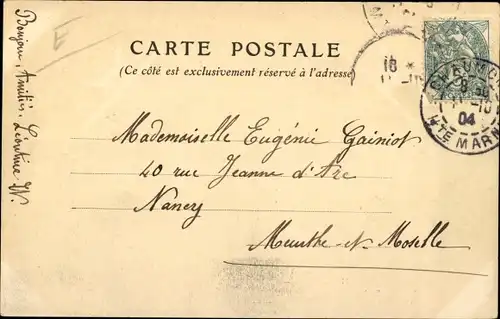 Bonjour, Amitiés, Léontine W.
E
CARTE POSTALE
(Ce côté est exclusivement réservé à l'adresse)
18 *
CHAUMONT
8 30
10
04
HTE MARNE
Mademoiselle Eugénie Gainiot
40 rue Jeanne d'Arc
Nancy
Meurthe-et-Moselle